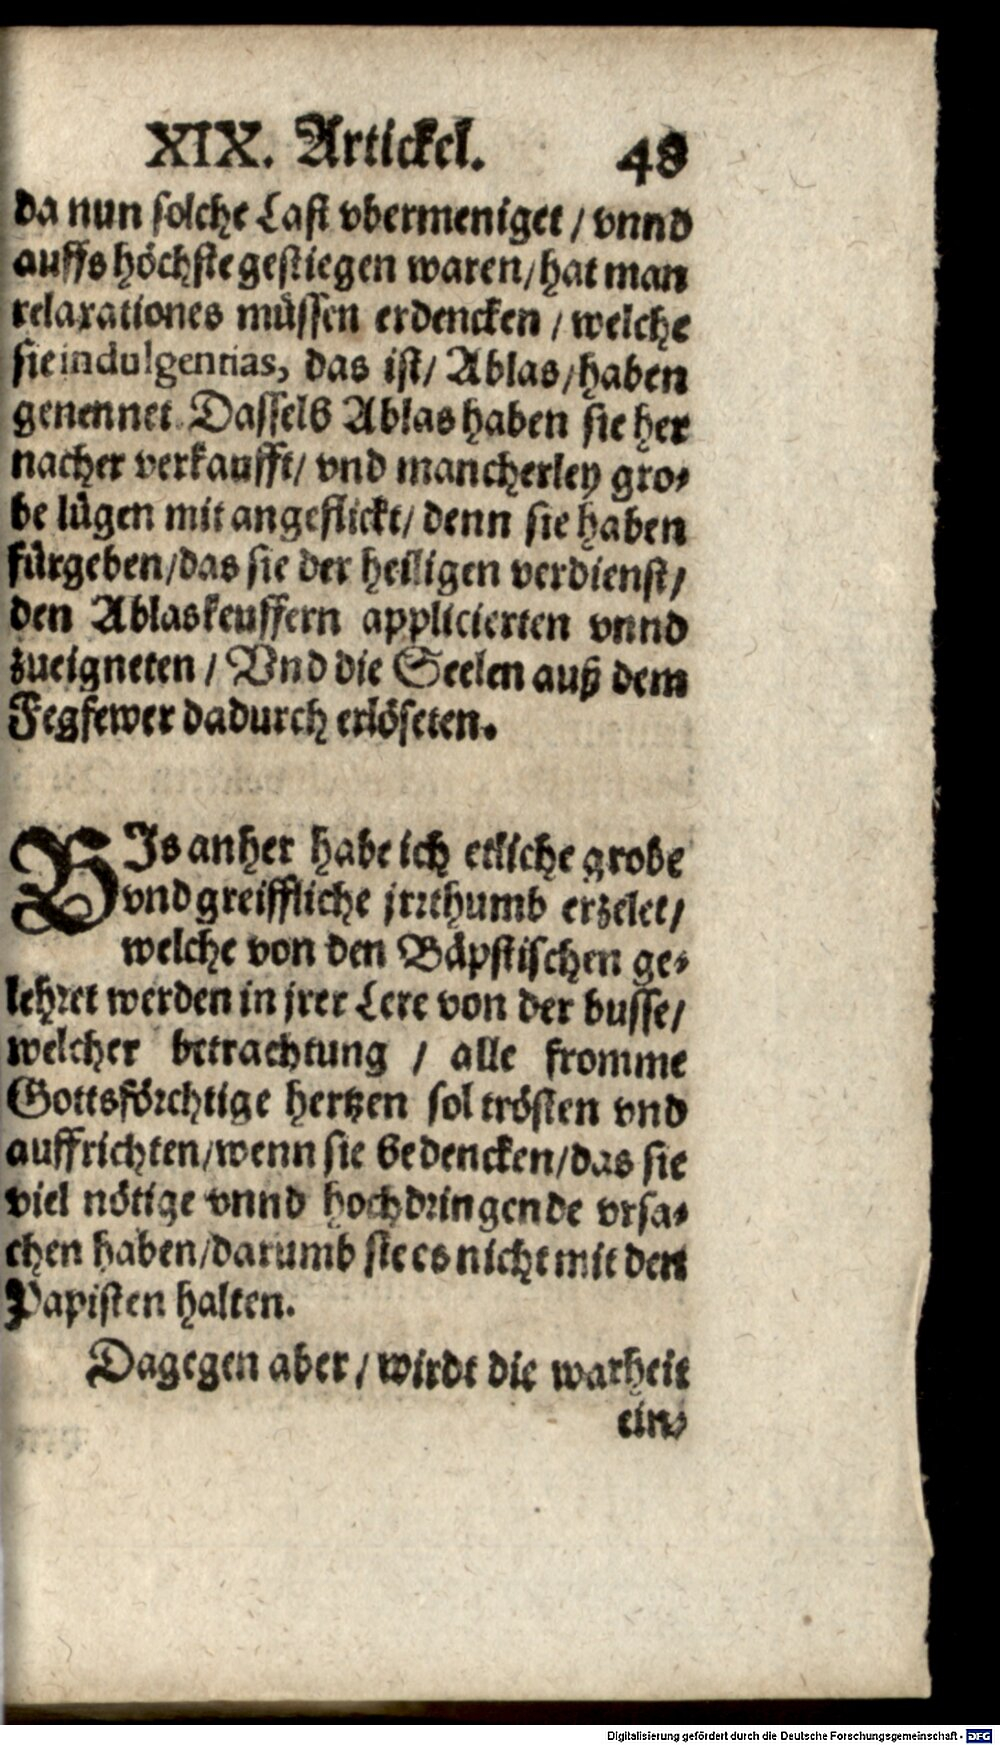 XIX. Artickel. 48
da nun solche Last vbermeniget / vnnd
auffs höchste gestiegen waren / hat man
relaxationes müssen erdencken / welche
sie indulgentias, das ist / Ablas / haben
genennet. Dasselb Ablas haben sie her
nacher verkaufft / vnd mancherley gro-
be lügen mit angeflickt / denn sie haben
fürgeben / das sie der heiligen verdienst /
den Ablaskeuffern applicierten vnnd
zueigneten / Vnd die Seelen auß dem
Fegfewer dadurch erlöseten.
BIs anher habe ich etliche grobe
vnd greiffliche jrrthumb erzelet /
welche von den Bäpstischen ge-
lehret werden in jrer Lere von der busse /
welcher betrachtung / alle fromme
Gottsförchtige hertzen sol trösten vnd
auffrichten / wenn sie bedencken / das sie
viel nötige vnnd hochdringende vrsa-
chen haben / darumb sie es nicht mit den
Papisten halten.
Dagegen aber / wirdt die warheit
ein-
Digitalisierung gefördert durch die Deutsche Forschungsgemeinschaft - DFG